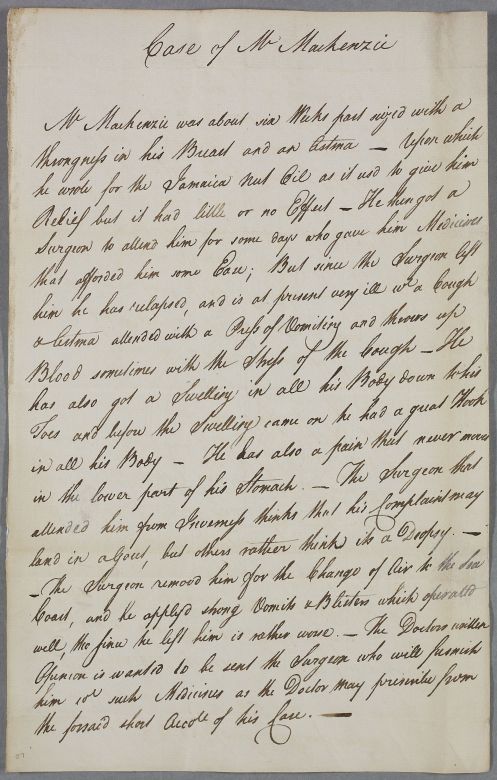 Case of Mr Mackenzie
Mr Mackenzie was about six Weeks past seized with a
throngness in his Breast and an Astma — Upon which
he wrote for the Jamaica Nut Oil as it usd to give him
Relief but it had little or no Effect — He then got a
Surgeon to attend him for some days who gave him Medicines
that afforded him some Ease; But since the Surgeon left
him he has relapsed, and is at present very ill wt a Cough
& Astma attended with a Press of Vomiting and throws up
Blood sometimes with the Stress of the Cough — He
has also got a Swelling in all his Body down to his
Toes and before the Swelling came on he had a great
in all his Body — He has also a pain that never moves
in the lower part of his Stomach. — The Surgeon that
attended him from Inverness thinks that his Complaint may
land in a Gout, but others rather think its a Dropsy. —
— The Surgeon removd him for the Change of Air to the Sea
Coast, and he applyd strong Vomits & Blisters which operated
well, tho since he left him is rather worse. — The Doctors written
Opinion is wanted to be sent the Surgeon who will furnish
him wt such Medicines as the Doctor may prescribe from
the forsaid short Accot of his Case. —